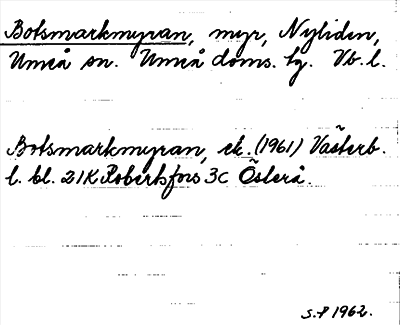 Botsmarkmyran, myr, Nyliden,
Umeå sn. Umeå doms. tg. Vb. l.
Botsmarkmyran, ek. (1961) Västerb.
l. bl. 21K Robertsfors 3c Österå.
S.P 1962.